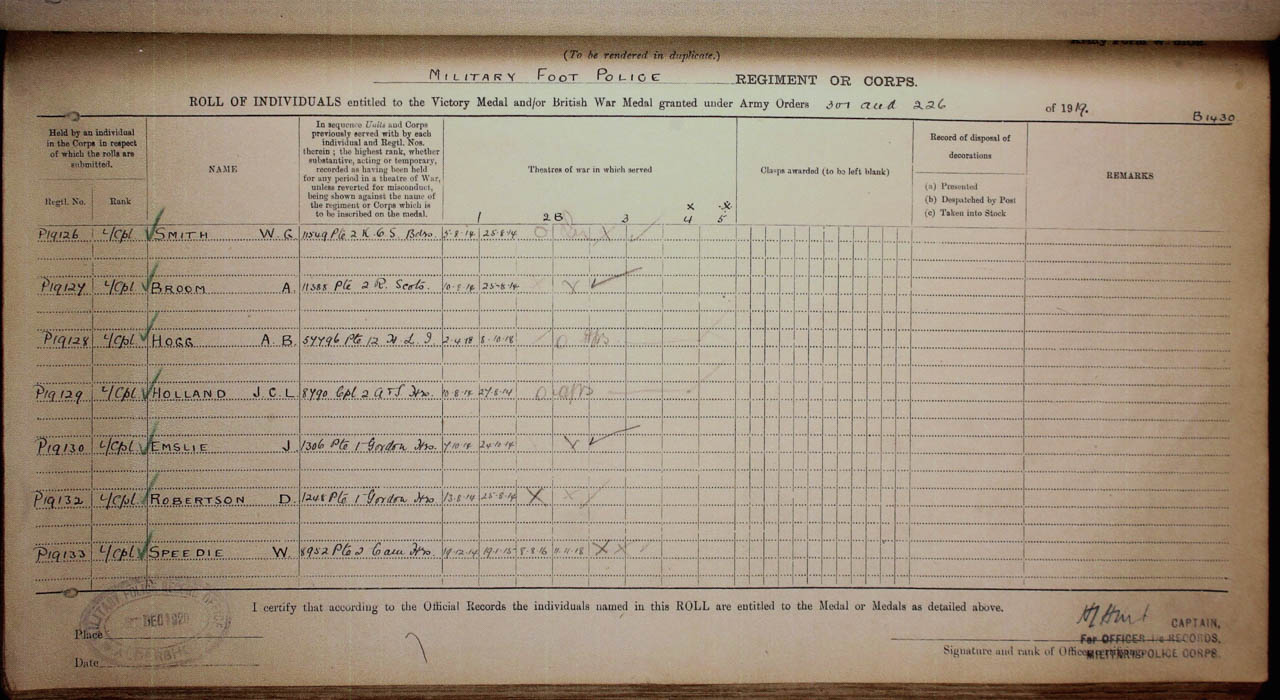 (To be rendered in duplicate.)
MILITARY FOOT POLICE REGIMENT OR CORPS.
ROLL OF INDIVIDUALS entitled to the Victory Medal and/or British War Medal granted under Army Orders 301 and 226 of 1919.
B1430
Held by an individual in the Corps in respect of which the rolls are submitted.
Regtl. No. Rank
NAME
In sequence Units and Corps previously served with by each individual and Regtl. Nos. therein; the highest rank, whether substantive, acting or temporary, recorded as having been held for any period in a theatre of War, unless reverted for misconduct, being shown against the name of the regiment or Corps which is to be inscribed on the medal.
Theatres of war in which served
1 2B 3 4 5
Clasps awarded (to be left blank)
Record of disposal of decorations
(a) Presented
(b) Despatched by Post
(c) Taken into Stock
REMARKS
P19126 L/Cpl SMITH W.G. 11549 Pte 2 K.O.S. Bdrs. 5-8-14 25-8-14
P19127 L/Cpl BROOM A. 11388 Pte 2 R. Scots. 10-8-14 25-8-14
P19128 L/Cpl HOGG A.B. 57796 Pte 12 H.L.I. 2-4-18 8-10-18
P19129 L/Cpl HOLLAND J.C.L. 8790 Cpl 2 A & S. Hrs. 10-8-14 27-8-14
P19130 L/Cpl EMSLIE J 1306 Pte 1 Gordon Hrs. 7-10-14 24-10-14
P19132 L/Cpl ROBERTSON D. 1248 Pte 1 Gordon Hrs. 13-8-14 25-8-14
P19133 L/Cpl SPEEDIE W. 8952 Pte 2 Cam Hrs. 19-12-14 19-1-15 8-8-16 11-11-18
I certify that according to the Official Records the individuals named in this ROLL are entitled to the Medal or Medals as detailed above.
Place
DEC 1920
Date
CAPTAIN,
For OFFICER i/c RECORDS,
MILITARY POLICE CORPS.
Signature and rank of Officer